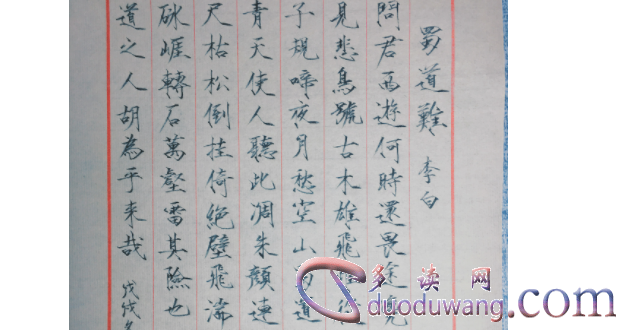 蜀道難 李白
問君西遊何時還畏途
見悲鳥號古木雄飛
子規啼夜月愁空山道
青天使人聽此凋朱顏連
尺枯松倒挂倚絕壁飛湍
砯崖轉石萬壑雷其險也
道之人胡為乎來哉 戊戌
多读网
duoduwang.com